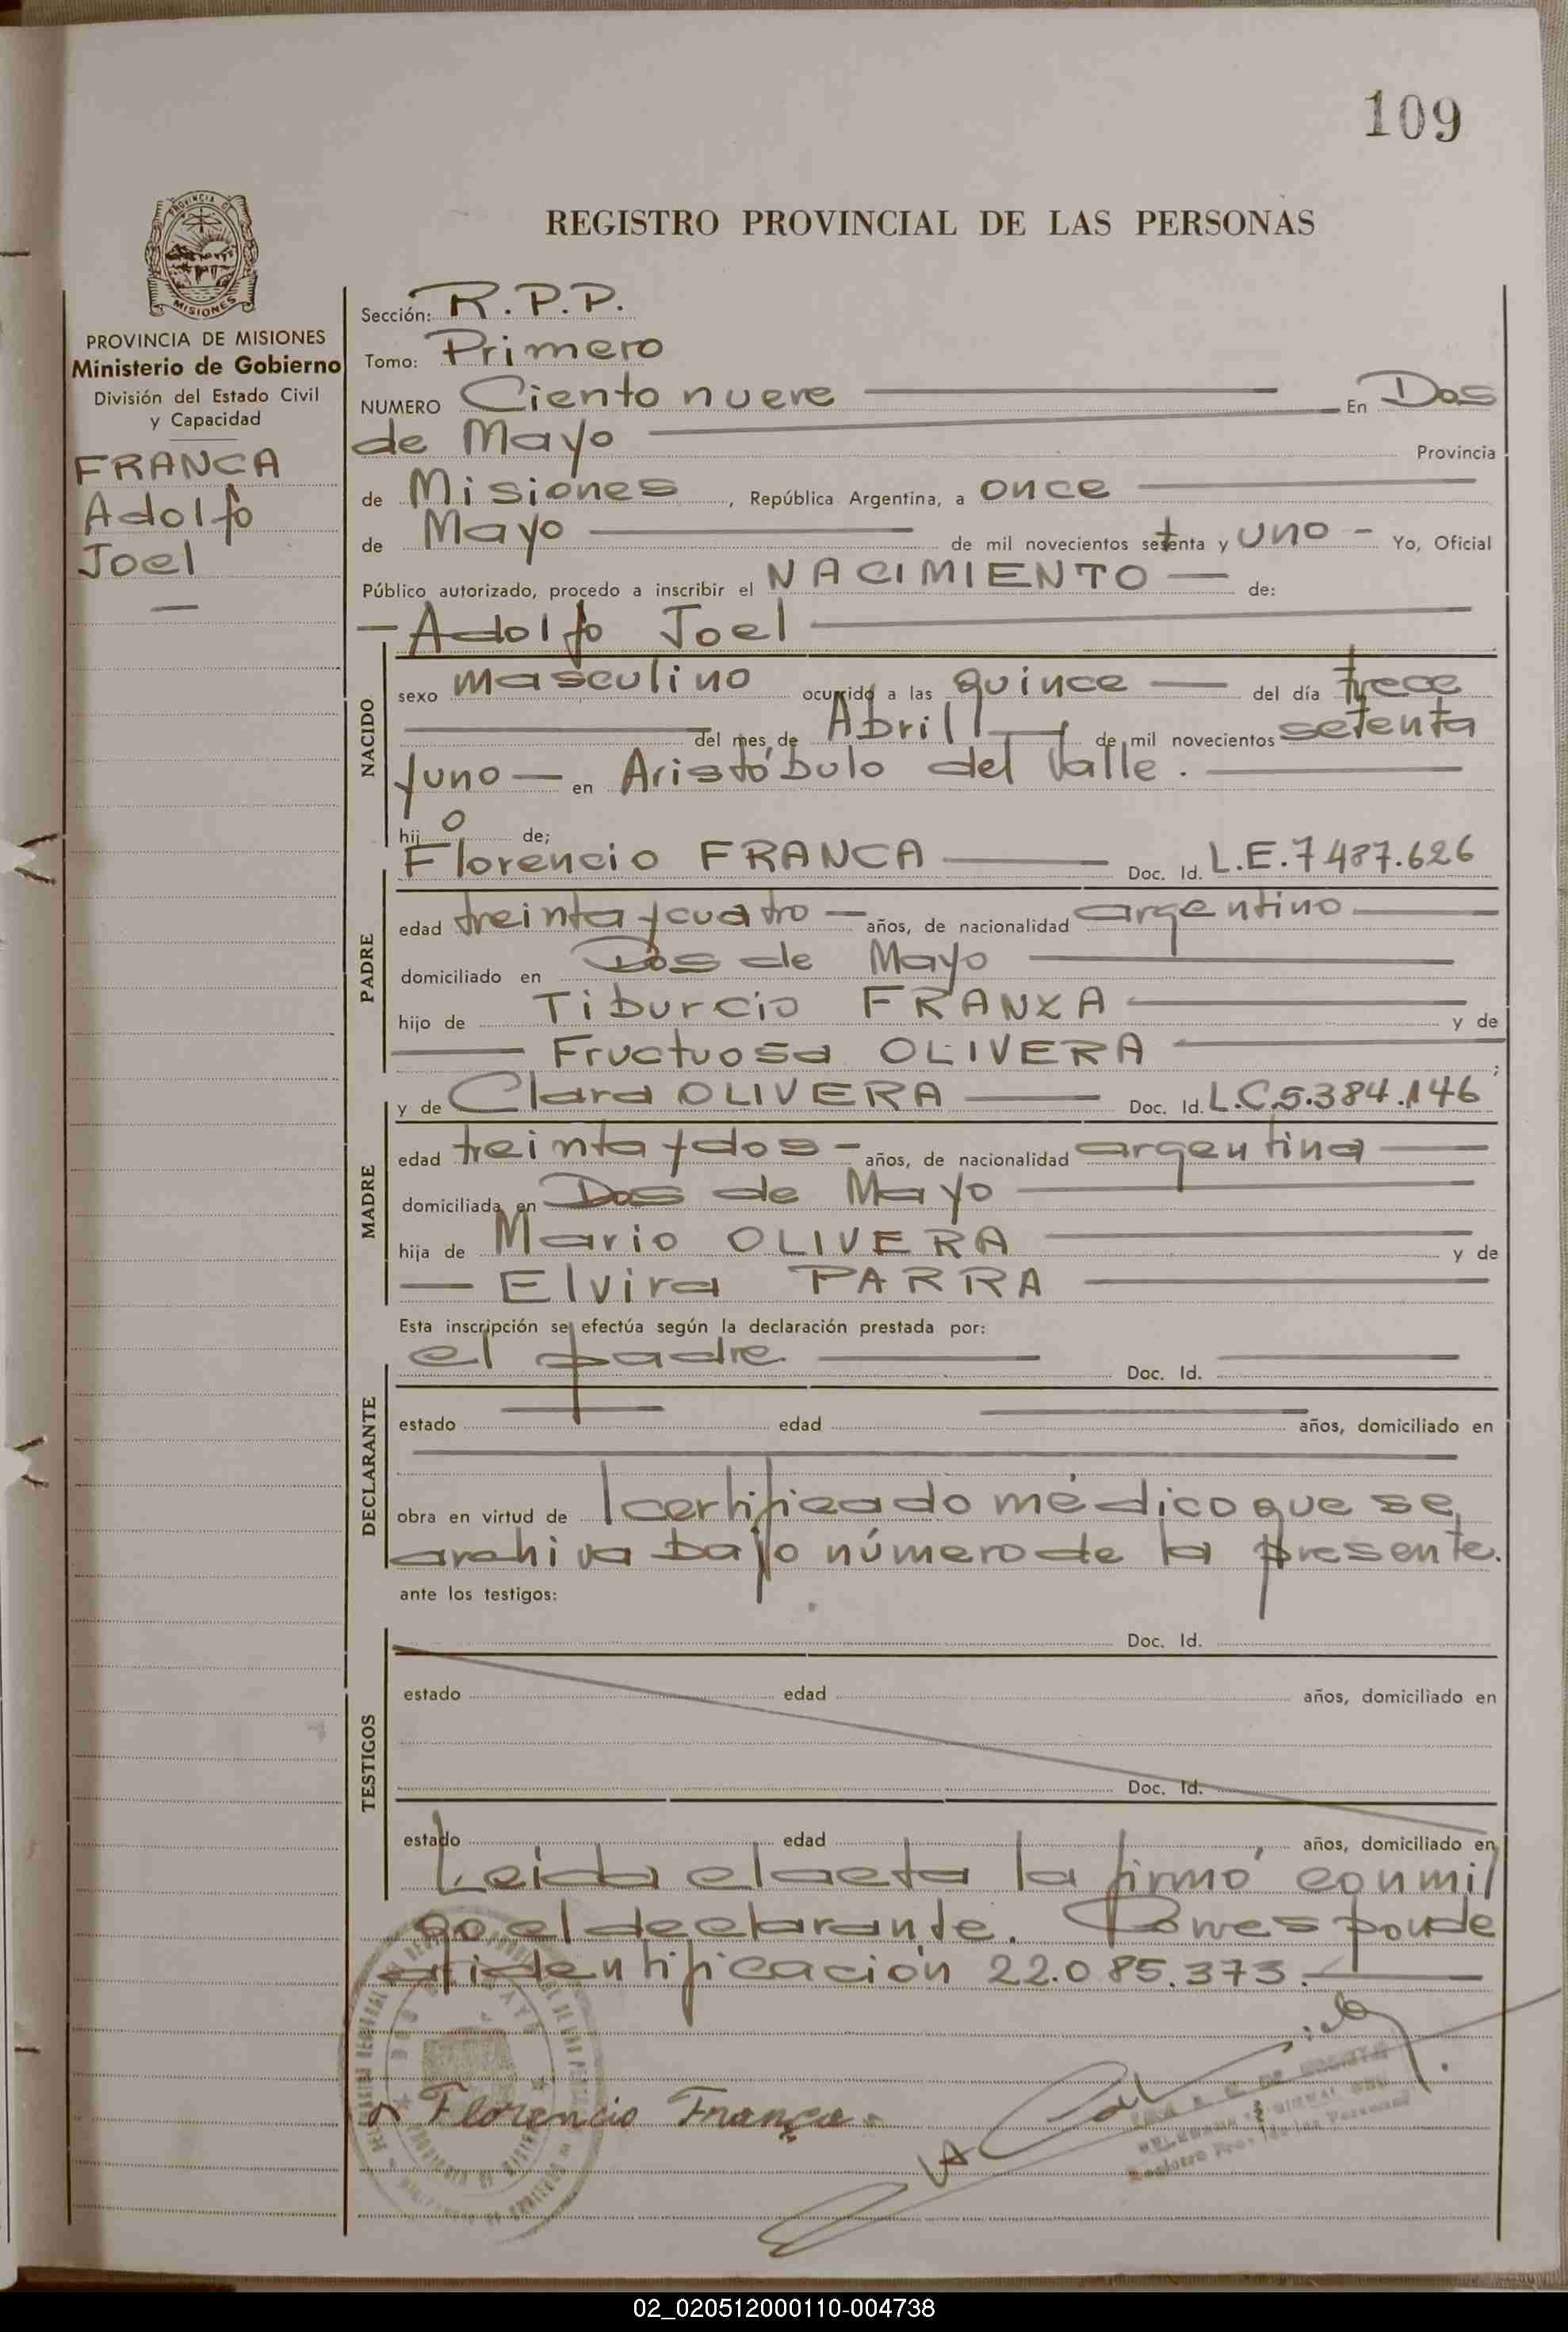 109
REGISTRO PROVINCIAL DE LAS PERSONAS
PROVINCIA DE
MISIONES
PROVINCIA DE MISIONES
Ministerio de Gobierno
División del Estado Civil
y Capacidad
FRANCA
Adolfo
Joel
Sección: R.P.P.
Tomo: Primero
NUMERO Ciento nueve En Dos
de Mayo Provincia
de Misiones, República Argentina, a once
de Mayo de mil novecientos setenta y uno - Yo, Oficial
Público autorizado, procedo a inscribir el NACIMIENTO — de:
— Adolfo Joel
NACIDO
sexo masculino ocurrido a las quince — del día trece
del mes de Abril de mil novecientos setenta
y uno — en Aristóbulo del Valle.
hijo de;
Florencio FRANCA Doc. Id. L.E. 7487.626
PADRE
edad treinta y cuatro — años, de nacionalidad argentino
domiciliado en Dos de Mayo
hijo de Tiburcio y de
Fructuosa OLIVERA ;
y de Clara OLIVERA Doc. Id. L.C.5.384.146
MADRE
edad treinta y dos - años, de nacionalidad argentina
domiciliada en Dos de Mayo
hija de Mario OLIVERA y de
— Elvira PARRA
Esta inscripción se efectúa según la declaración prestada por:
el padre Doc. Id.
DECLARANTE
estado edad años, domiciliado en
obra en virtud de l certificado médico que se
archiva bajo número de la presente.
ante los testigos:
Doc. Id.
TESTIGOS
estado edad años, domiciliado en
Doc. Id.
estado edad años, domiciliado en
Leida el acta la firmó conmi
go el declarante. Corresponde
a identificación 22.085.373.
Florencio Franca
02_020512000110-004738